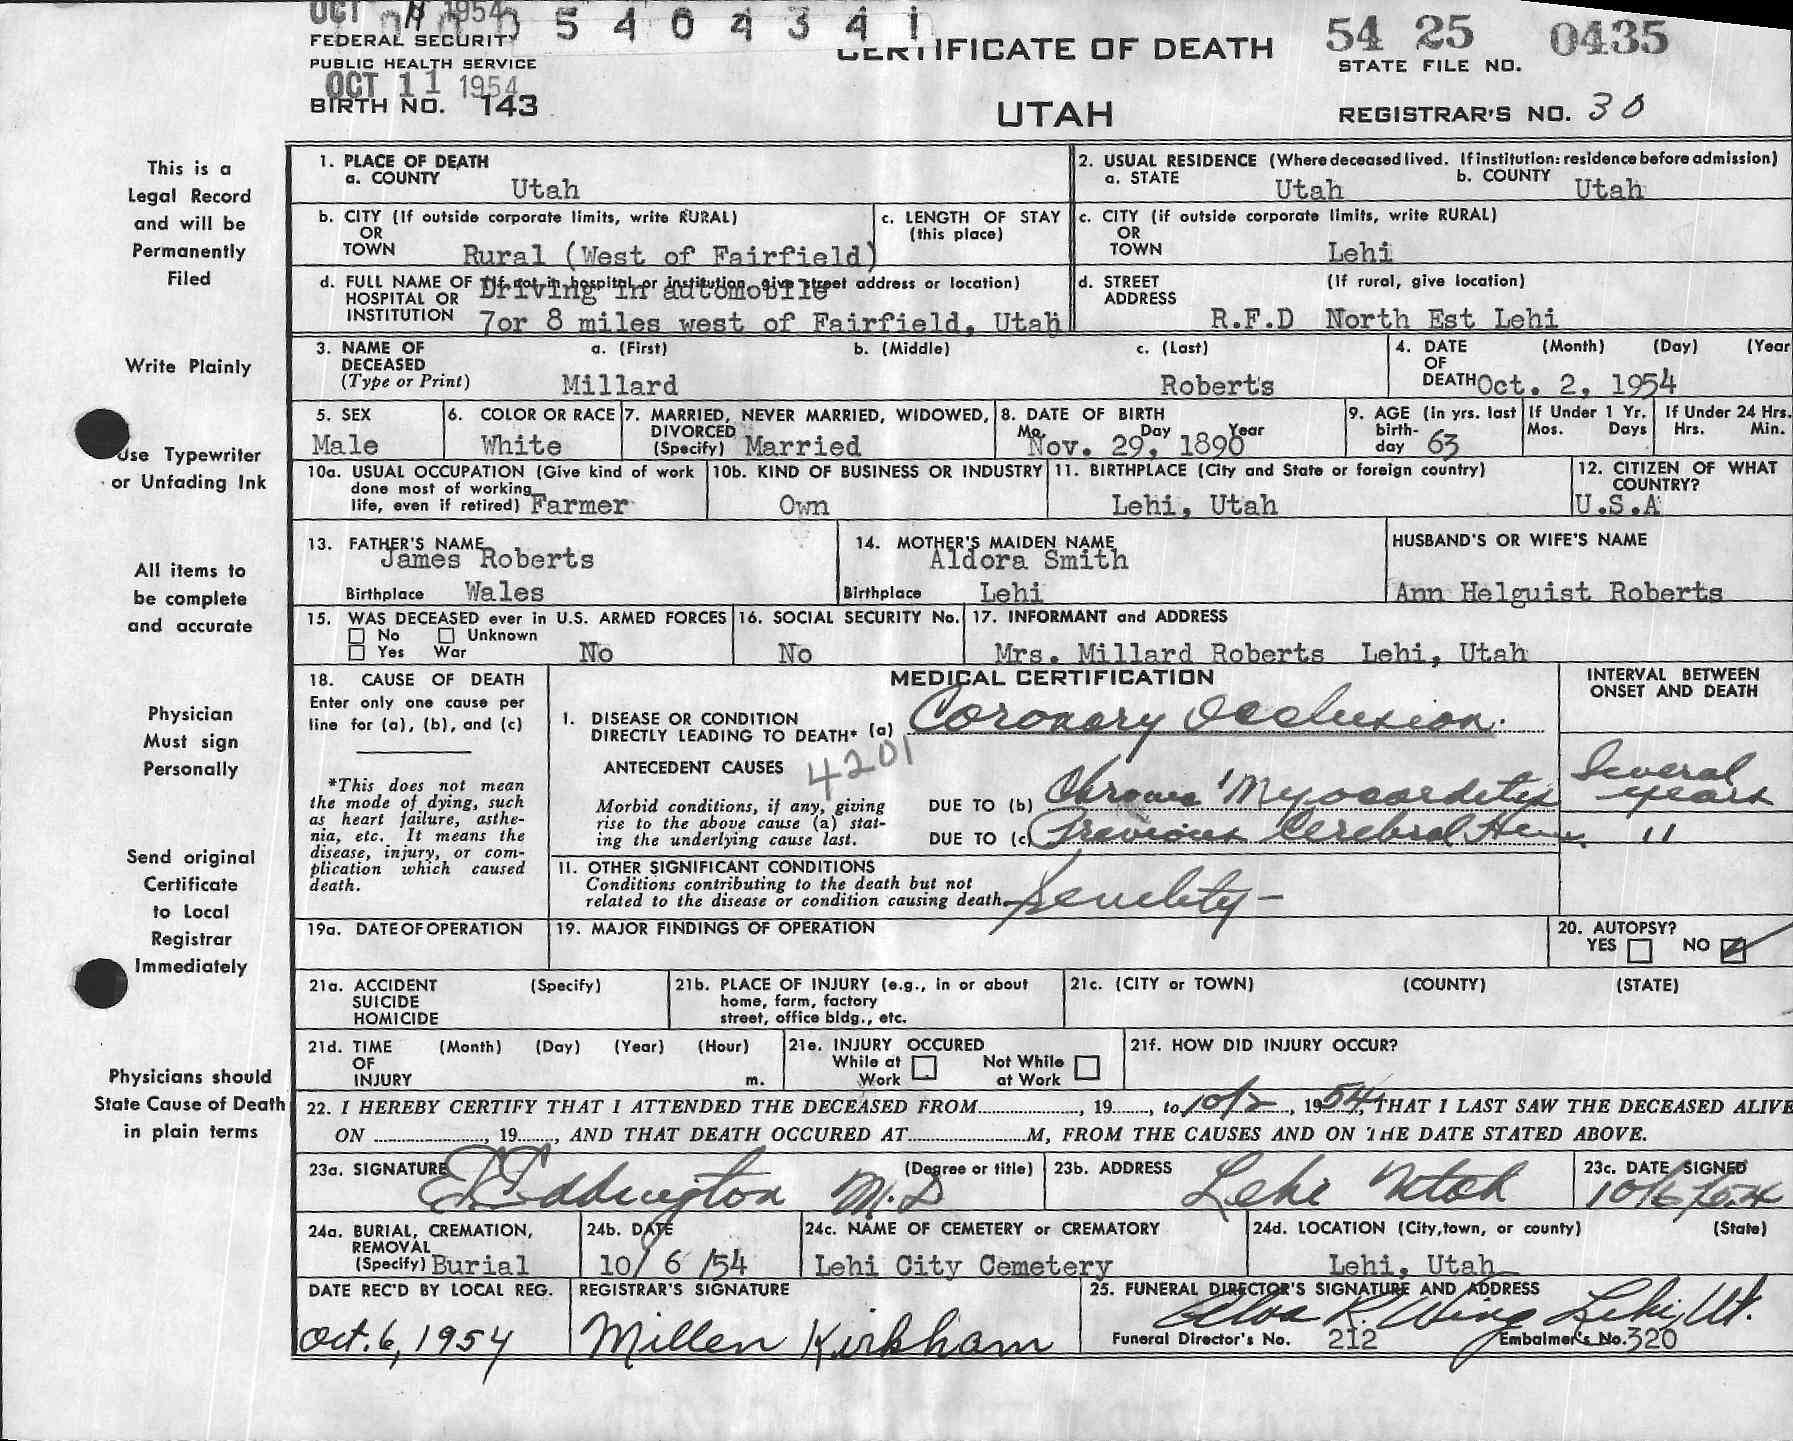 OCT 11 1954 5 4 0 4 3 4 1
FEDERAL SECURITY
PUBLIC HEALTH SERVICE
OCT 11 1954
BIRTH NO. 143
CERTIFICATE OF DEATH
UTAH
54 25 0435
STATE FILE NO.
REGISTRAR'S NO. 30
This is a
Legal Record
and will be
Permanently
Filed
Write Plainly
Use Typewriter
or Unfading Ink
All items to
be complete
and accurate
Physician
Must sign
Personally
Send original
Certificate
to Local
Registrar
Immediately
Physicians should
State Cause of Death
in plain terms
1. PLACE OF DEATH
a. COUNTY Utah
2. USUAL RESIDENCE (Where deceased lived. If institution: residence before admission)
a. STATE Utah b. COUNTY Utah
b. CITY (If outside corporate limits, write RURAL)
OR
TOWN Rural (West of Fairfield)
c. LENGTH OF STAY
(this place)
c. CITY (if outside corporate limits, write RURAL)
OR
TOWN Lehi
d. FULL NAME OF (If not in hospital or institution, give street address or location)
HOSPITAL OR Driving in automobile
INSTITUTION 7or 8 miles west of Fairfield, Utah
d. STREET (If rural, give location)
ADDRESS
R.F.D North Est Lehi
3. NAME OF a. (First) b. (Middle) c. (Last)
DECEASED
(Type or Print) Millard Roberts
4. DATE (Month) (Day) (Year
OF
DEATH Oct. 2, 1954
5. SEX
Male
6. COLOR OR RACE
White
7. MARRIED, NEVER MARRIED, WIDOWED,
DIVORCED
(Specify) Married
8. DATE OF BIRTH
Mo. Day Year
Nov. 29, 1890
9. AGE (in yrs. last
birth-
day 63
If Under 1 Yr.
Mos. Days
If Under 24 Hrs.
Hrs. Min.
10a. USUAL OCCUPATION (Give kind of work
done most of working
life, even if retired) Farmer
10b. KIND OF BUSINESS OR INDUSTRY
Own
11. BIRTHPLACE (City and State or foreign country)
Lehi, Utah
12. CITIZEN OF WHAT
COUNTRY?
U.S.A
13. FATHER'S NAME
James Roberts
Birthplace Wales
14. MOTHER'S MAIDEN NAME
Aldora Smith
Birthplace Lehi
HUSBAND'S OR WIFE'S NAME
Ann Helguist Roberts
15. WAS DECEASED ever in U.S. ARMED FORCES
No Unknown
Yes War No
16. SOCIAL SECURITY No.
No
17. INFORMANT and ADDRESS
Mrs. Millard Roberts Lehi, Utah
18. CAUSE OF DEATH
Enter only one cause per
line for (a), (b), and (c)
*This does not mean
the mode of dying, such
as heart failure, asthe-
nia, etc. It means the
disease, injury, or com-
plication which caused
death.
MEDICAL CERTIFICATION
1. DISEASE OR CONDITION
DIRECTLY LEADING TO DEATH* (a) Coronary Occlusion.
4201
ANTECEDENT CAUSES
Morbid conditions, if any, giving
rise to the above cause (a) stat-
ing the underlying cause last.
DUE TO (b) Chronic Myocarditis
DUE TO (c) Previous Cerebral Hem.
INTERVAL BETWEEN
ONSET AND DEATH
Several
years
"
11. OTHER SIGNIFICANT CONDITIONS
Conditions contributing to the death but not
related to the disease or condition causing death. Senility -
19a. DATE OF OPERATION
19. MAJOR FINDINGS OF OPERATION
20. AUTOPSY?
YES NO
21a. ACCIDENT (Specify)
SUICIDE
HOMICIDE
21b. PLACE OF INJURY (e.g., in or about
home, farm, factory
street, office bldg., etc.
21c. (CITY or TOWN) (COUNTY) (STATE)
21d. TIME (Month) (Day) (Year) (Hour)
OF
INJURY m.
21e. INJURY OCCURED
While at Not While
Work at Work
21f. HOW DID INJURY OCCUR?
22. I HEREBY CERTIFY THAT I ATTENDED THE DECEASED FROM............, 19......, to 10/2, 1954, THAT I LAST SAW THE DECEASED ALIVE
ON ............, 19......, AND THAT DEATH OCCURED AT............M, FROM THE CAUSES AND ON THE DATE STATED ABOVE.
23a. SIGNATURE (Degree or title)
Eddington M.D
23b. ADDRESS
Lehi Utah
23c. DATE SIGNED
10/6/54
24a. BURIAL, CREMATION,
REMOVAL
(Specify) Burial
24b. DATE
10/ 6 /54
24c. NAME OF CEMETERY or CREMATORY
Lehi City Cemetery
24d. LOCATION (City, town, or county) (State)
Lehi, Utah
DATE REC'D BY LOCAL REG.
Oct. 6, 1954
REGISTRAR'S SIGNATURE
Millen Kirkham
25. FUNERAL DIRECTOR'S SIGNATURE AND ADDRESS
Elva R. Wing Lehi, Ut.
Funeral Director's No. 212 Embalmer's No. 320